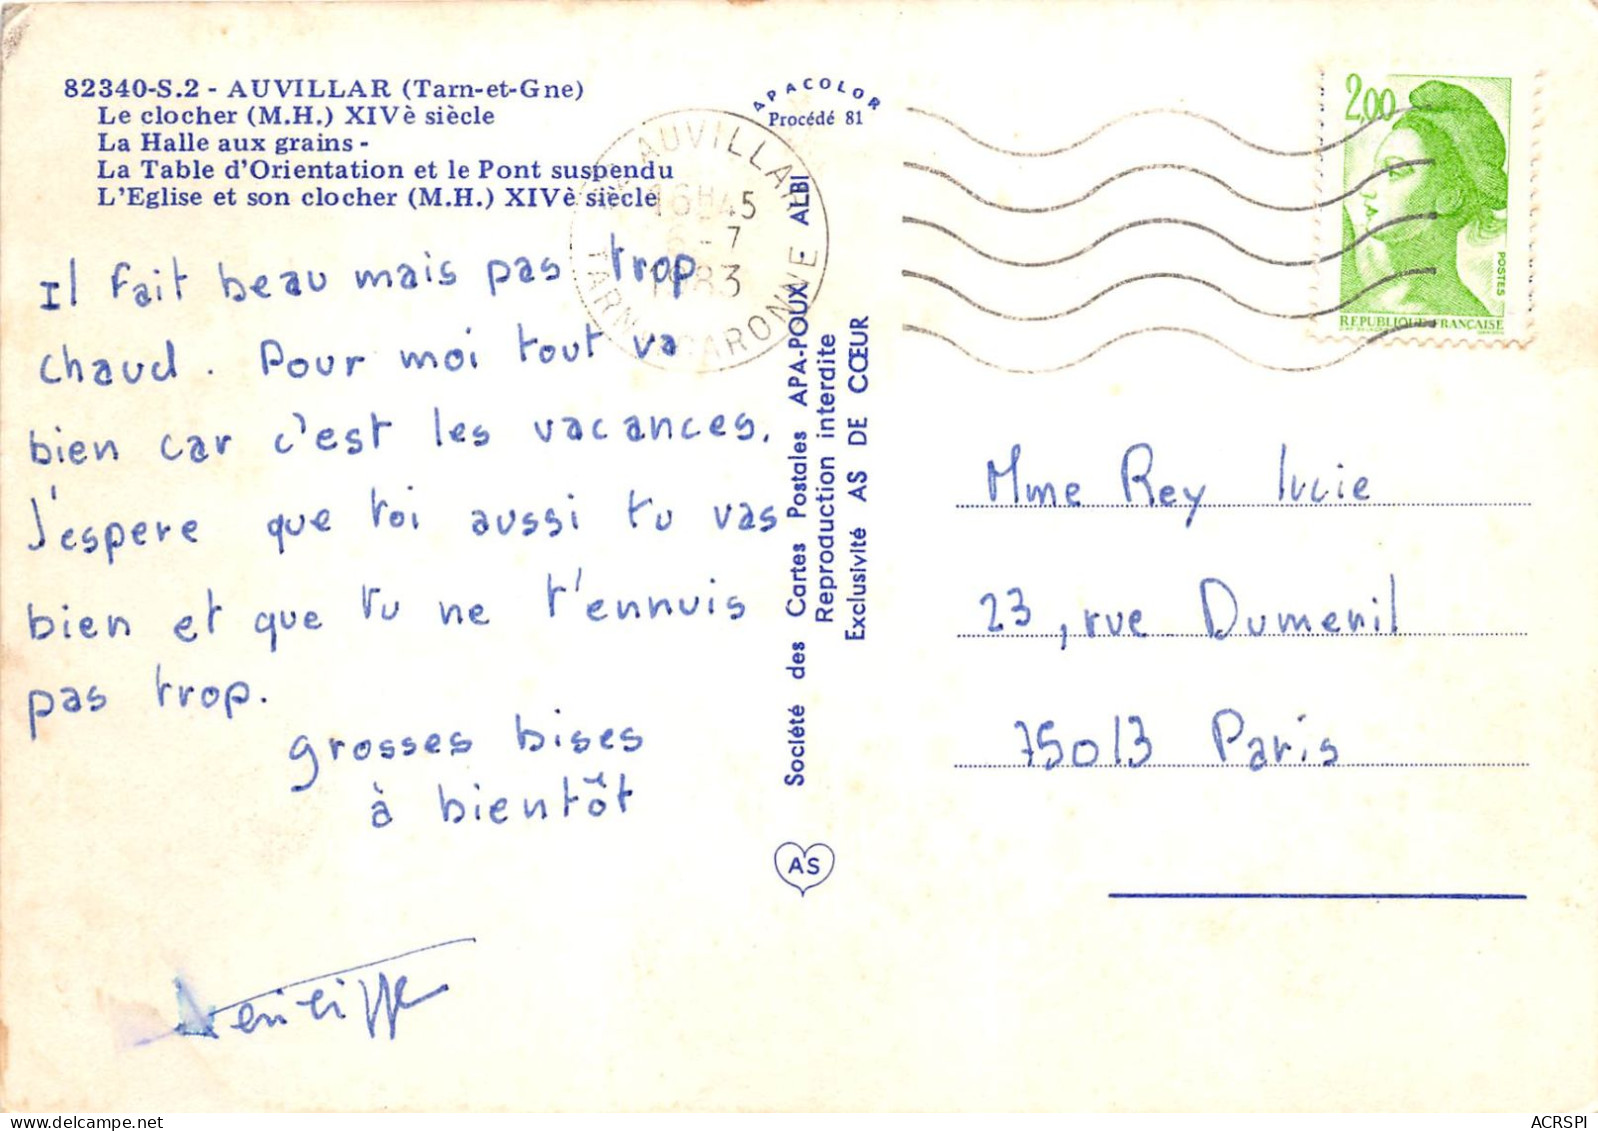 82340-S.2 - AUVILLAR (Tarn-et-Gne)
Le clocher (M.H.) XIVè siècle
La Halle aux grains -
La Table d'Orientation et le Pont suspendu
L'Eglise et son clocher (M.H.) XIVè siècle
APACOLOR
Procédé 81
AUVILLAR
16H45
6-7
1983
TARN GARONNE
2,00
POSTES
REPUBLIQUE FRANÇAISE
Il fait beau mais pas trop
chaud. Pour moi tout va
bien car c'est les vacances.
J'espere que toi aussi tu vas
bien et que tu ne t'ennuis
pas trop.
grosses bises
à bientôt
Société des Cartes Postales APA-POUX ALBI
Reproduction interdite
Exclusivité AS DE CŒUR
AS
Mme Rey Lucie
23, rue Dumenil
75013 Paris
ACRSPI